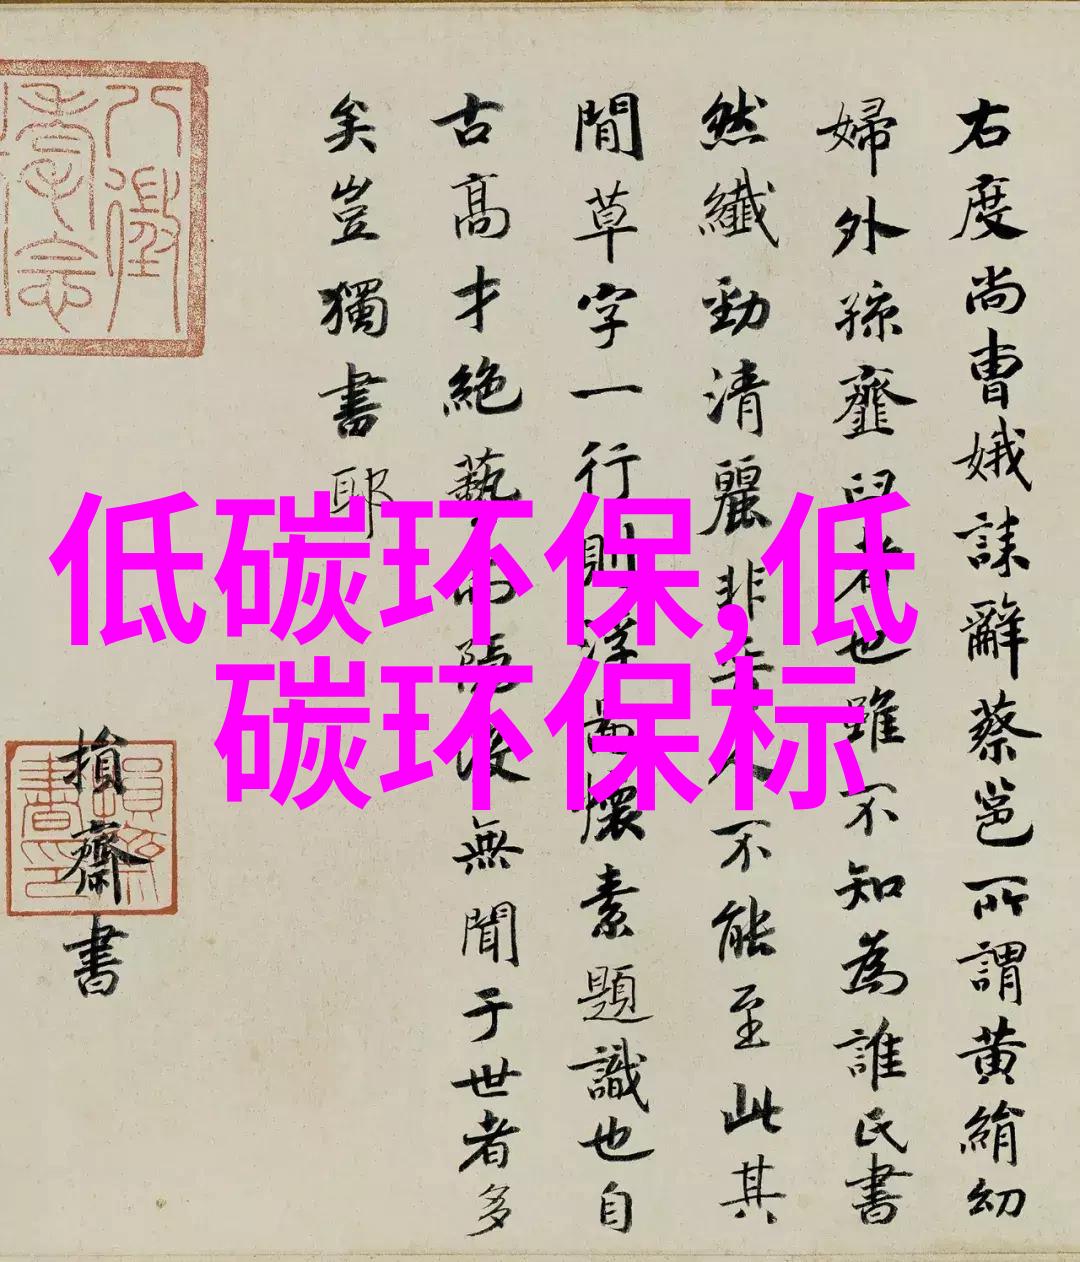 右度尚曹娥誄辭蔡邕所謂黄絹幼
婦外孫虀臼者也雖不知為誰氏書
然纖勁清麗非晉人不能至此其
間草字一行則浮圖懷素題識也自
古高才絶藝而隱没無聞于世者多
矣豈獨書耶
損齋書
低碳环保,低
碳环保标